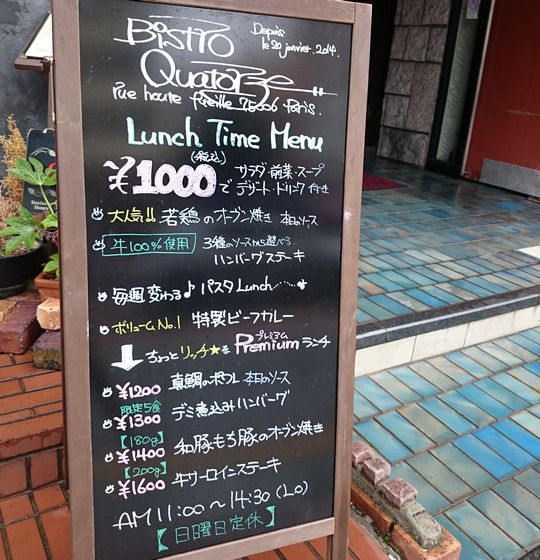 BISTRO
Depuis
le 20 janvier. 2014.
Quatorze
rue haute 75006 Paris.
Lunch Time Menu
(税込)
¥1000で
サラダ・前菜・スープ
デザート・ドリンク 付き
大人気!! 若鶏のオーブン焼き 本日のソース
牛100%使用 3種のソースから選べる
ハンバーグステーキ
毎週変わる♪パスタLunch……
ボリュームNo.1 特製ビーフカレー
ちょっとリッチ★な Premiumランチ
プレミアム
¥1200 真鯛のポワレ 本日のソース
限定5食
¥1300 デミ煮込みハンバーグ
【180g】
¥1400 和豚もち豚のオーブン焼き
【200g】
¥1600 牛サーロインステーキ
AM 11:00〜14:30(LO)
【日曜日定休】